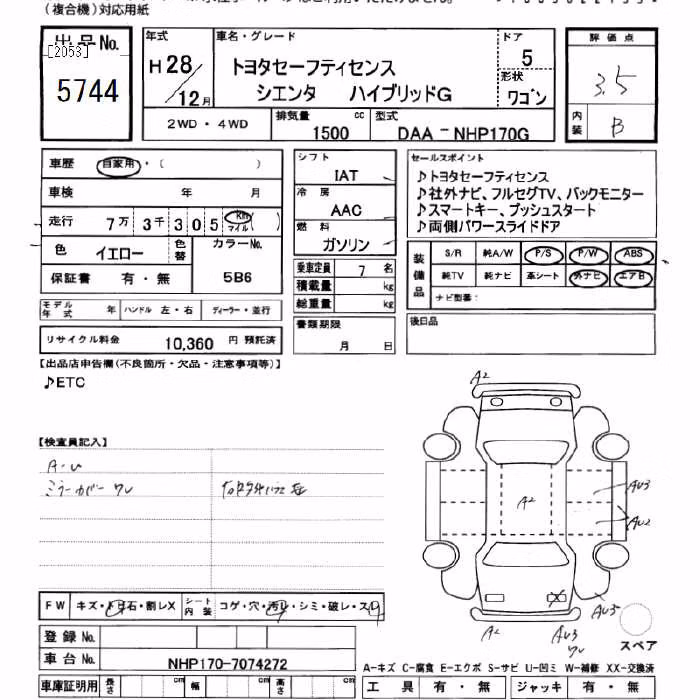 (複合機)対応用紙
出品No.
[2053]
5744
年式
H 28/12月
車名・グレード
トヨタセーフティセンス
シエンタ ハイブリッドG
ドア
5
形状
ワゴン
評価点
3.5
内装
B
2WD・4WD
排気量 cc
1500
型式
DAA－NHP170G
車歴 自家用・( )
車検 年 月
走行 7万 3千 305 km マイル ( )
色 イエロー
色替
カラーNo.
5B6
保証書 有・無
シフト
IAT
冷房
AAC
燃料
ガソリン
乗車定員 7 名
積載量 kg
総重量 kg
書類期限
月 日
セールスポイント
♪トヨタセーフティセンス
♪社外ナビ、フルセグTV、バックモニター
♪スマートキー、プッシュスタート
♪両側パワースライドドア
装備品
S/R 純A/W P/S P/W ABS
純TV 純ナビ 革シート 外ナビ エアB
ナビ型番:
後日品
モデル年式 年 ハンドル 左・右 ディーラー・並行
リサイクル料金 10,360 円 預託済
【出品店申告欄(不良箇所・欠品・注意事項等)】
♪ETC
【検査員記入】
A・U
ミラーカバー ワレ
A2
A2
AU3
AU2
AU3
A2
AU3
ワレ
スペア
FW キズ・トビ石・割レX
シート内装 コゲ・穴・汚レ・シミ・破レ・スレ
登録No.
車台No. NHP170-7074272
車庫証明用 長さ cm 幅 cm 高さ cm
A-キズ C-腐食 E-エクボ S-サビ U-凹ミ W-補修 XX-交換済
工具 有・無 ジャッキ 有・無